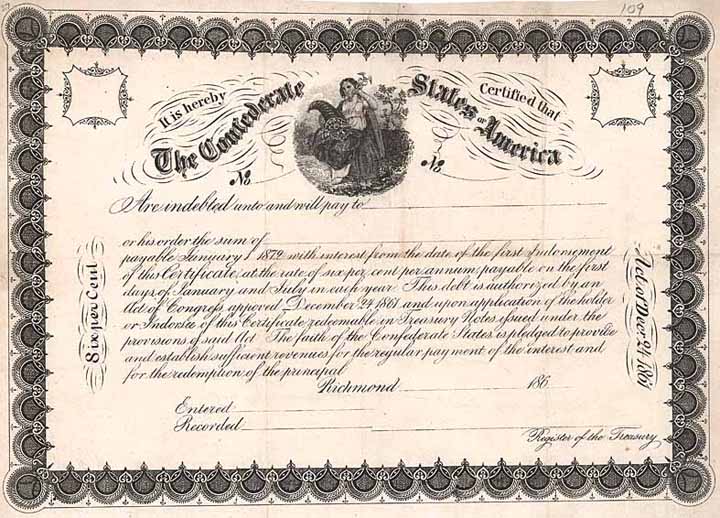 109
It is hereby Certified that
The Confederate States OF America
No No
Are indebted unto and will pay to
or his order the sum of
payable January 1 1872 with interest from the date of the first Indorsment
of this Certificate, at the rate of six per cent per annum payable on the first
days of January and July in each year. This debt is authorized by an
Act of Congress approved December 24 1861 and upon application of the holder
or Indorsee of this Certificate redeemable in Treasury Notes issued under the
provisions of said Act. The faith of the Confederate States is pledged to provide
and establish sufficient revenues for the regular payment of the interest and
for the redemption of the principal
Richmond 186
Entered
Recorded
Register of the Treasury
Six per Cent
Act of Decr 24 1861